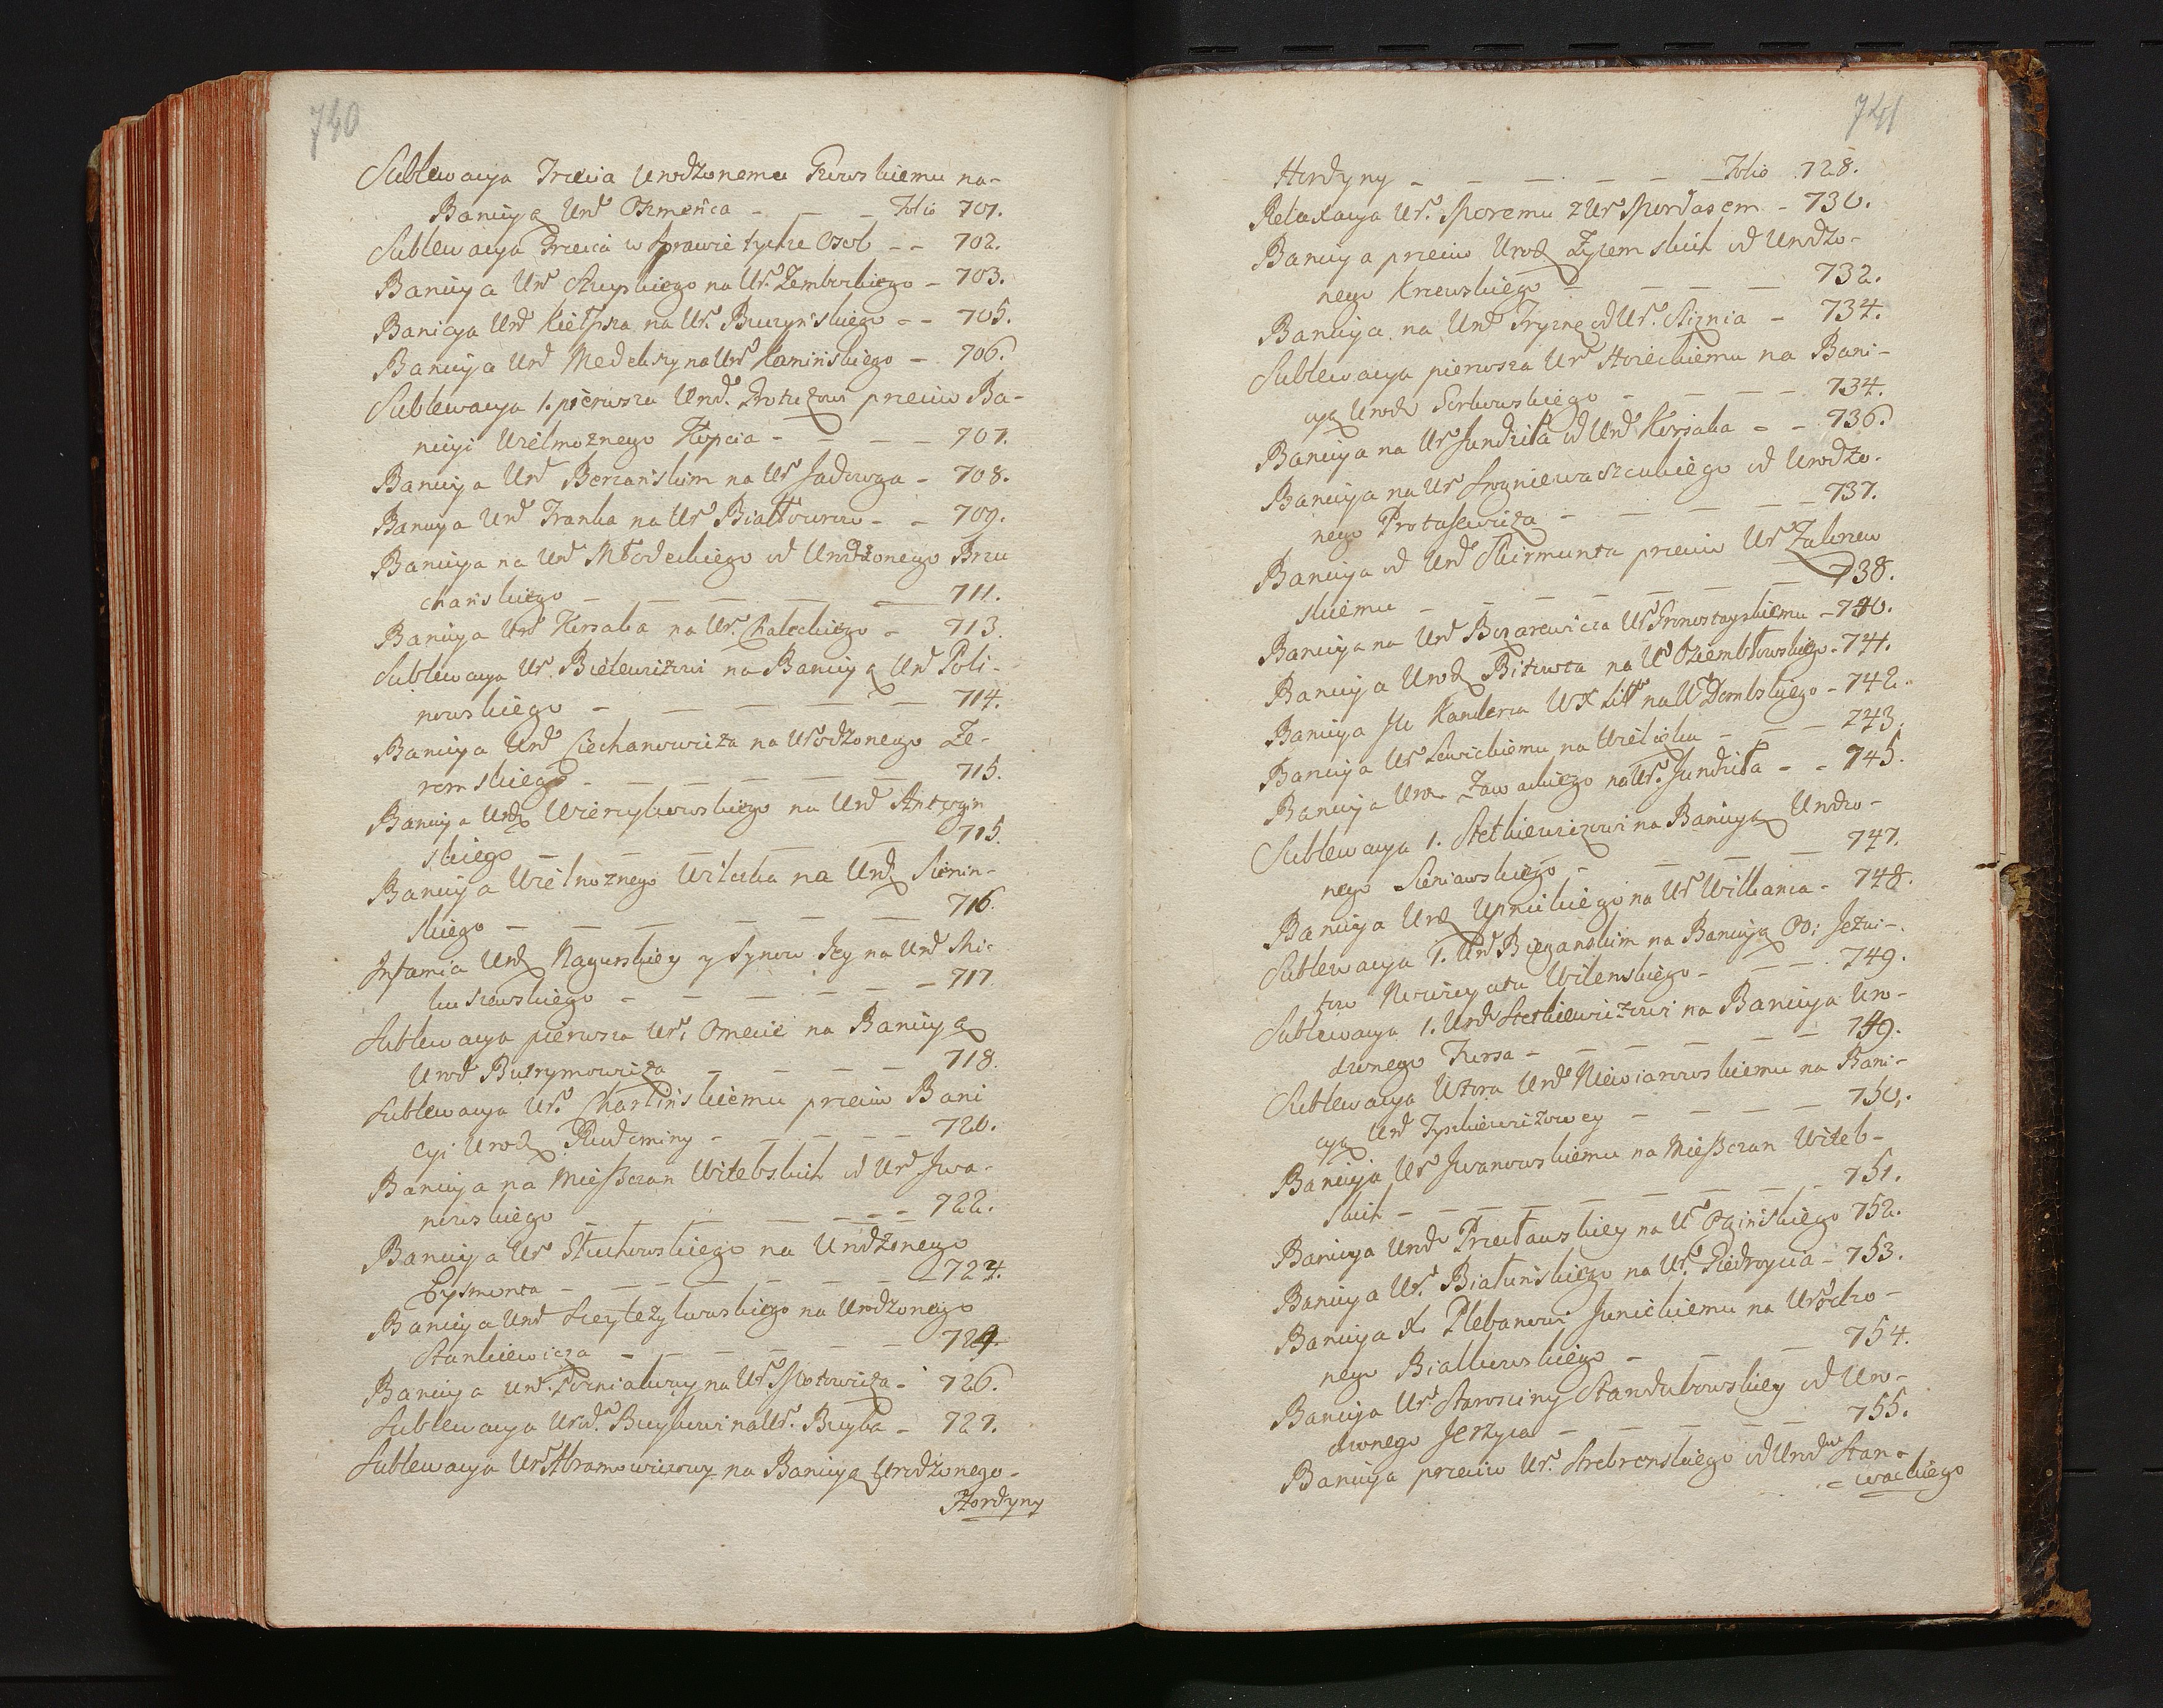 740
Sublewacya Trzecia Urodzonemu Gurskiemu na-
Banicyą Urd Ozmeńca - - - Folio 701.
Sublewacya Trzecia w Sprawie tychze Osob - - 702.
Banicya Urd Skupskiego na Ur. Zemborskiego - 703.
Banicya Urd Kiełpsza na Ur. Buczyńskiego - - 705.
Banicya Urd Medekszy na Urd Kamińskiego - 706.
Sublewacya 1. pierwsza Urod. przeciw Ba-
nicyi Wielmożnego Kopcia - - - - 707.
Banicya Urd Berzańskim na Ur Jadowga - 708.
Banicya Urd Franka na Ur - - 709.
Banicya na Urd Młodeckiego od Urodzonego Brzu
chańskiego - - - - - 711.
Banicya Urd Korsaka na Ur. Chaleckiego - 713.
Sublewacya Ur. Bielewiczowi na Banicyą Urd Poli-
nowskiego - - - - - - 714.
Banicya Urd Ciechanowicza na Urodzonego Że-
romskiego - - - - - - 715.
Banicya Urdz Wierzykowskiego na Urd Antogin
skiego - - - - - 715.
Banicya Wielmożnego Wilczka na Urdz Sienin-
skiego - - - - - 716.
Infamia Urdz Nagurskiey y Synow Jey na Urd Mi-
kuszewskiego - - - - - - 717.
Sublewacya pierwsza Ur. Omecie na Banicyą
Urod Butrymowicza - - - - 718.
Sublewacya Ur. Charlińskiemu przeciw Bani
cyi Urodz Rudominy - - - - - 720.
Banicya na Mieszczan Witebskich od Urd Jwa-
nowskiego - - - - - - 722.
Banicya Ur Słuchowskiego na Urodzonego
Eysmonta - - - - - - 724.
Banicya Urd na Urodzonego
Stankiewicza - - - - - - 724.
Banicya Urd. na Ur. - 726.
Sublewacya Urod. Buykowi na Ur. Buyka - 727.
Sublewacya Ur Abramowiczowy na Banicyą Urodzonego -
Hordyny
741
Hordyny - - - - - - Folio 728.
Relaxacya Ur. Skoremu z Ur Skordasem - 730.
Banicya przeciw Urodz Żylemskich od Urodzo-
nego Krzewskiego - - - - 732.
Banicya na Urd Tryznę od Ur. Sliznia - 734.
Sublewacya pierwsza Ur Howieckiemu na Bani-
cyą Urodz Gorkowskiego - - - - 734.
Banicya na Ur Jundziła od Urd Korsaka - - 736.
Banicya na Ur od Urodzo-
nego Protasewicza - - - - - 737.
Banicya od Urd Skirmunta przeciw Ur Zakrzew
skiemu - - - - - - 738.
Banicya na Urd Bozarewicza Ur Gronostayskiemu - 740.
Banicya Urodz Bitowta na Ur Dziembłowskiego - 741.
Banicya JW Kanclerza WX Litt na Ur Dembskiego - 742.
Banicya Ur Lewickiemu na - - - 743.
Banicya Urd Zawackiego na Ur. Jundziła - - 745.
Sublewacya 1. Stetkiewiczowi na Banicyą Urodzo-
nego Sieniawskiego - - - - 747.
Banicya Urdz Upnickiego na Ur Wilkanca - 748.
Sublewacya 1. Urd Bieganskim na Banicyą OO: Jezui-
tow Nowicyatu Wilenskiego - - - 749.
Sublewacya 1. Urd Stetkiewiczowi na Banicya Uro-
dzonego Kursa - - - - - - 749.
Sublewacya Wtora Urd Niewiarowskiemu na Bani-
cyą Urd Tyszkiewiczowey - - - - 750.
Banicya Ur Jwanowskiemu na Mieszczan Witeb-
skich - - - - - - - - 751.
Banicya Urd Przecławskiey na Ur Ogińskiego 752.
Banicya Ur. Białuńskiego na Ur. Giedroycia - 753.
Banicya X. Plebanowi Junickiemu na Urodzo-
nego Białkowskiego - - - 754.
Banicya Ur. Starosciny Starodubowskiey od Uro-
dzonego Jerzyca - - - - - 755.
Banicya przeciw Ur. Srebronskiego od Urod Stan-
wackiego